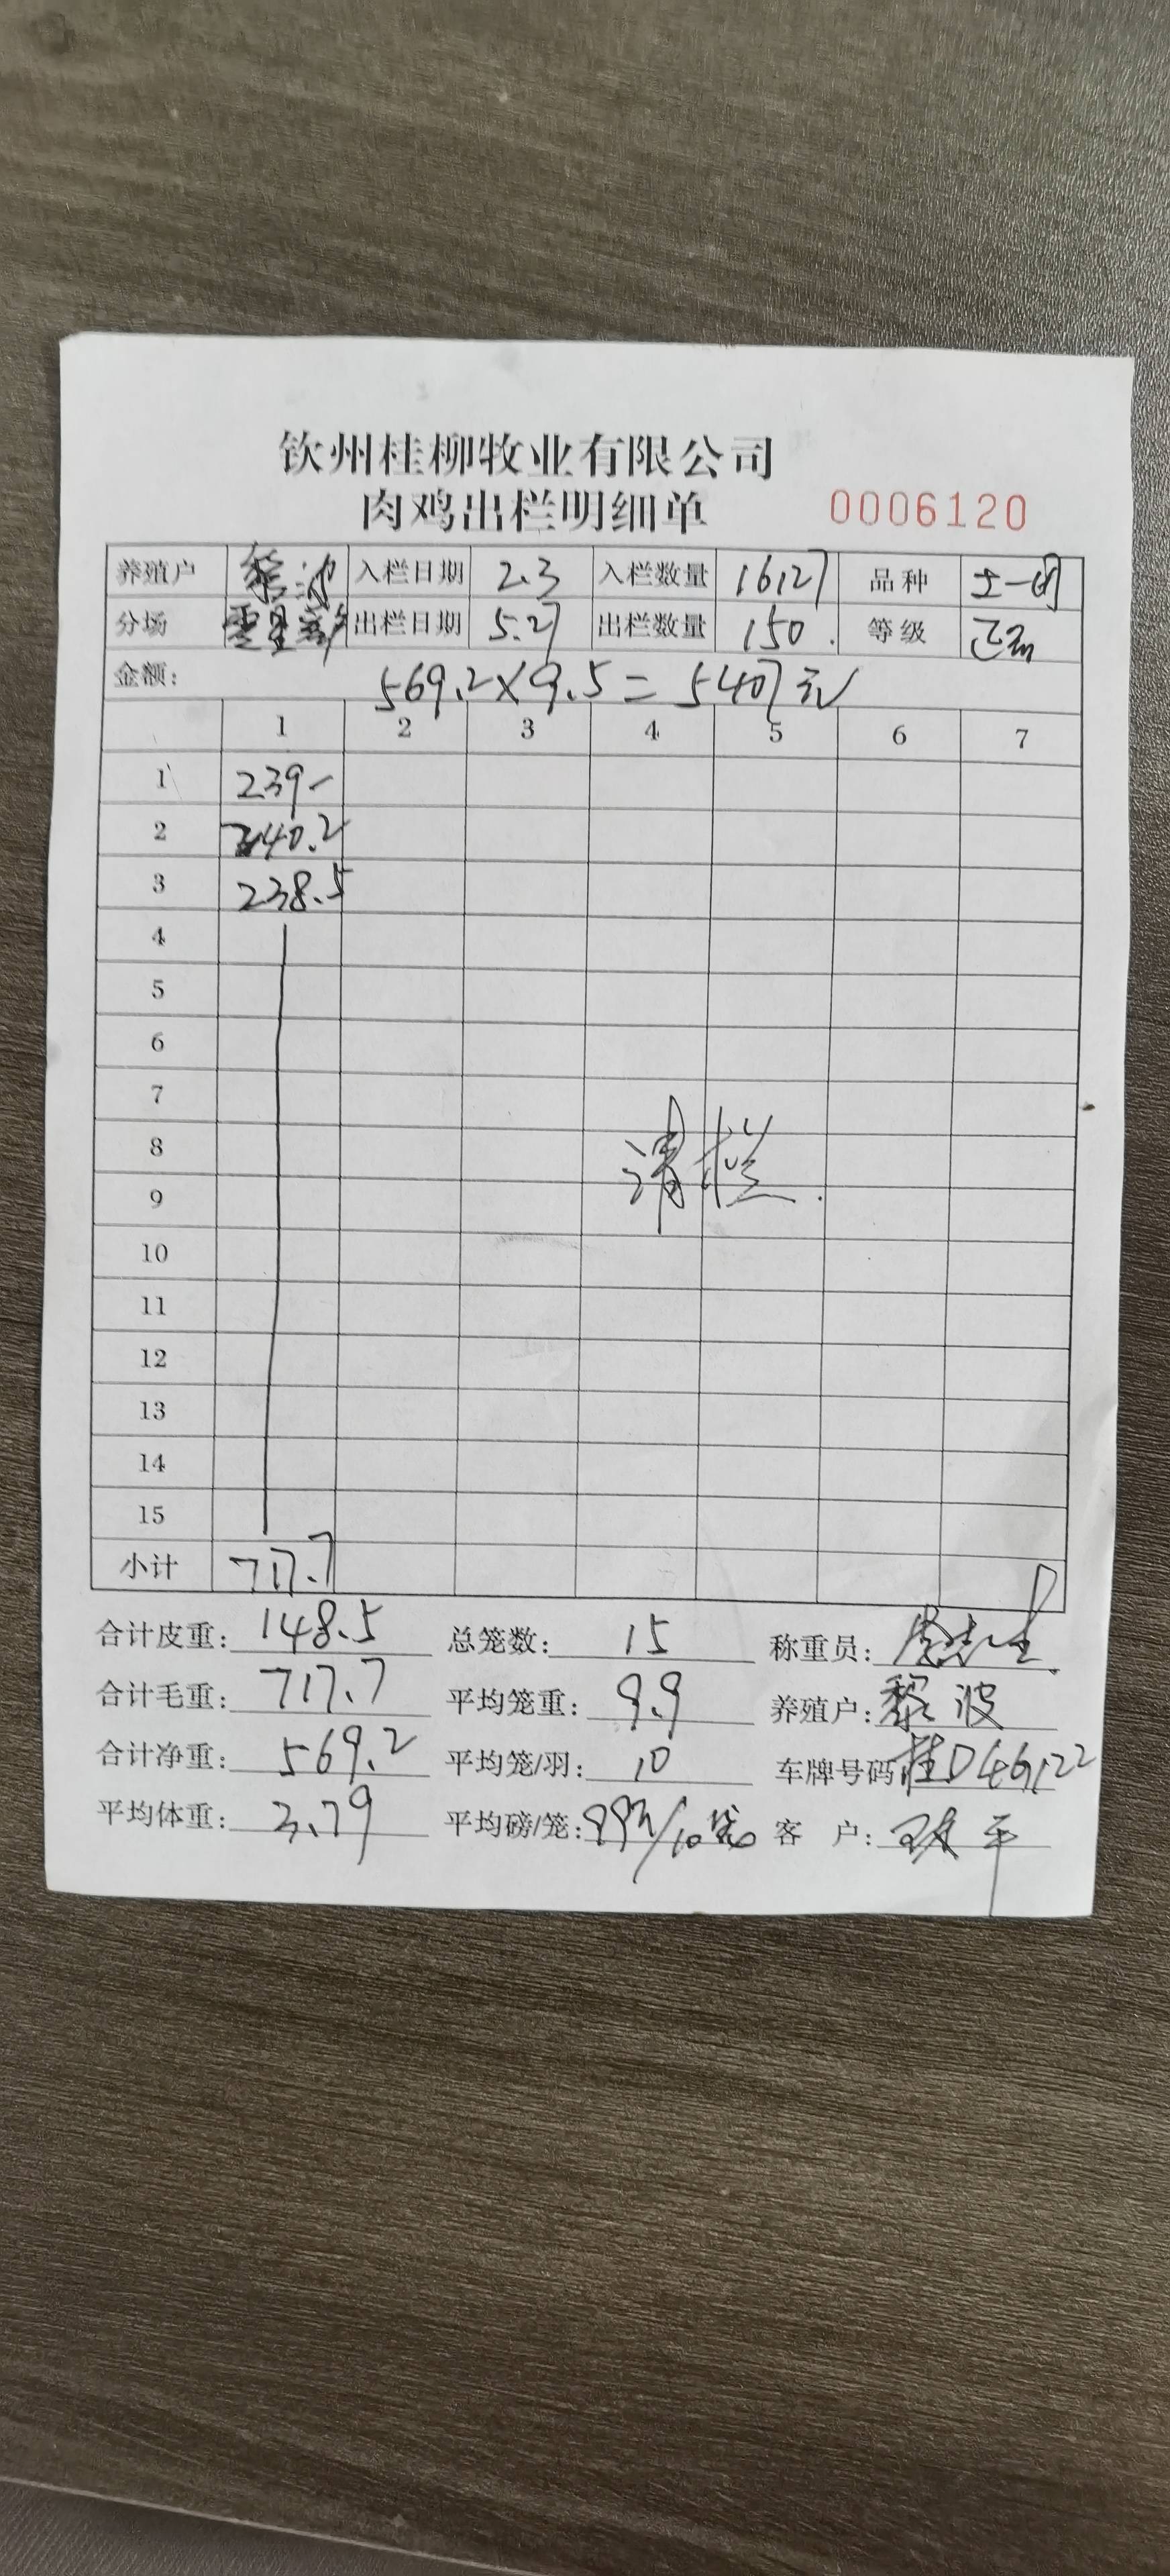 钦州桂柳牧业有限公司
肉鸡出栏明细单 0006120
养殖户 黎波 入栏日期 2.3 入栏数量 16127 品种 土一的
分场 出栏日期 5.27 出栏数量 150. 等级 正品
金额: 569.2×9.5=5407元
1 2 3 4 5 6 7
1 239-
2 240.2
3 238.5
4
5
6
7
8 清栏.
9
10
11
12
13
14
15
小计 717.7
合计皮重: 148.5 总笼数: 15 称重员:
合计毛重: 717.7 平均笼重: 9.9 养殖户: 黎波
合计净重: 569.2 平均笼/羽: 10 车牌号码 桂D46122
平均体重: 3.79 平均磅/笼: 客 户: 平